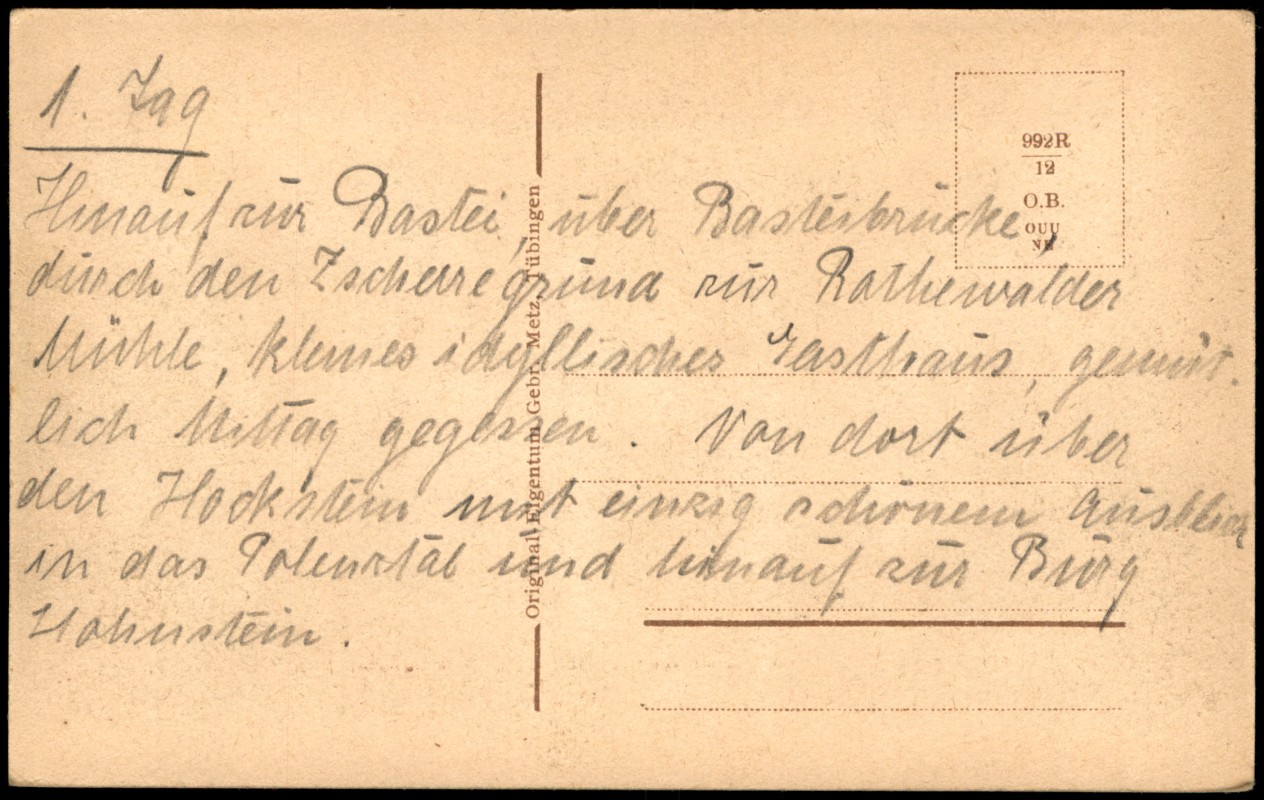 1. Tag
Hinauf zur Bastei, über Basteibrücke,
durch den Zscherregrund zur Rathewalder
Mühle, kleines idyllisches Gasthaus, gemüt-
lich Mittag gegessen. Von dort über
den Hockstein mit einzig schönem Ausblick
in das Polenztal und hinauf zur Burg
Hohnstein.
Original-Eigentum Gebr. Metz, Tübingen
992R
12
O.B.
OUU